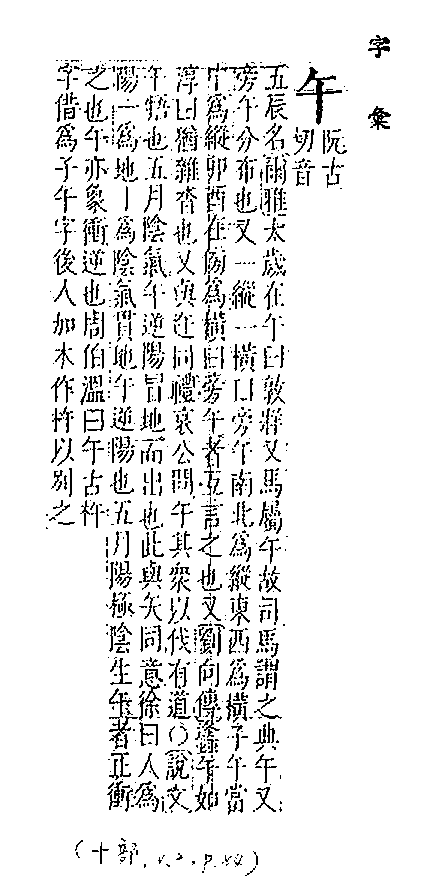 字彙
午
阮古
切音
五辰名爾雅太歲在午曰敦牂又馬屬午故司馬謂之典午又
旁午分布也又一縱一橫曰旁午南北為縱東西為橫子午當
中為縱卯酉在兩旁為橫曰旁午者互言之也又劉向傳蠭午如
淳曰猶雜沓也又與迕同禮哀公問午其衆以伐有道○說文
午牾也五月陰氣午逆陽冒地而出也此與矢同意徐曰人為
陽一為地丨為陰氣貫地午逆陽也五月陽極陰生午者正衝
之也午亦象衝逆也周伯溫曰午古杵
字借為子午字後人加木作杵以別之
(十部,